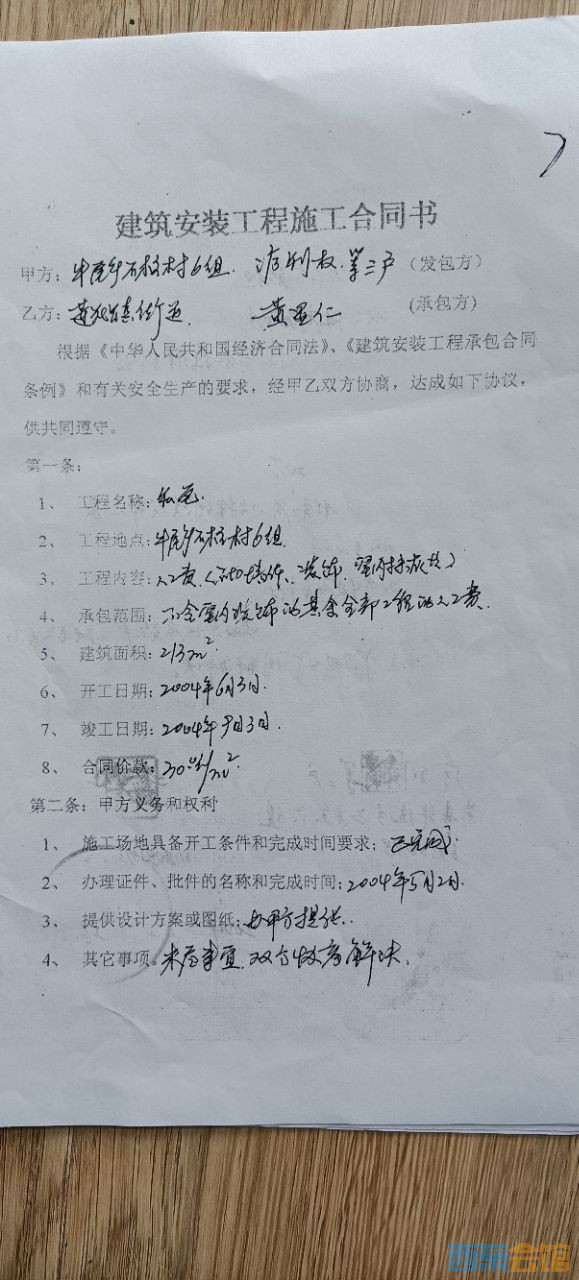 建筑安装工程施工合同书
甲方：牛尾乡石梯村6组. 权.第三户（发包方）
乙方：镇街道. 黄显仁 (承包方)
根据《中华人民共和国经济合同法》、《建筑安装工程承包合同
条例》和有关安全生产的要求，经甲乙双方协商，达成如下协议，
供共同遵守。
第一条：
1、 工程名称：私宅.
2、 工程地点：牛尾乡石梯村6组.
3、 工程内容：人工费
4、 承包范围：不含室内装饰的其余全部工程的人工费.
5、 建筑面积：213m²
6、 开工日期：2004年6月3日.
7、 竣工日期：2004年9月3日.
8、 合同价款：/m².
第二条：甲方义务和权利
1、 施工场地具备开工条件和完成时间要求：已完成.
2、 办理证件、批件的名称和完成时间：2004年5月2日.
3、 提供设计方案或图纸：由甲方提供.
4、 其它事项。未尽事宜.双方协商解决.
西祠会馆